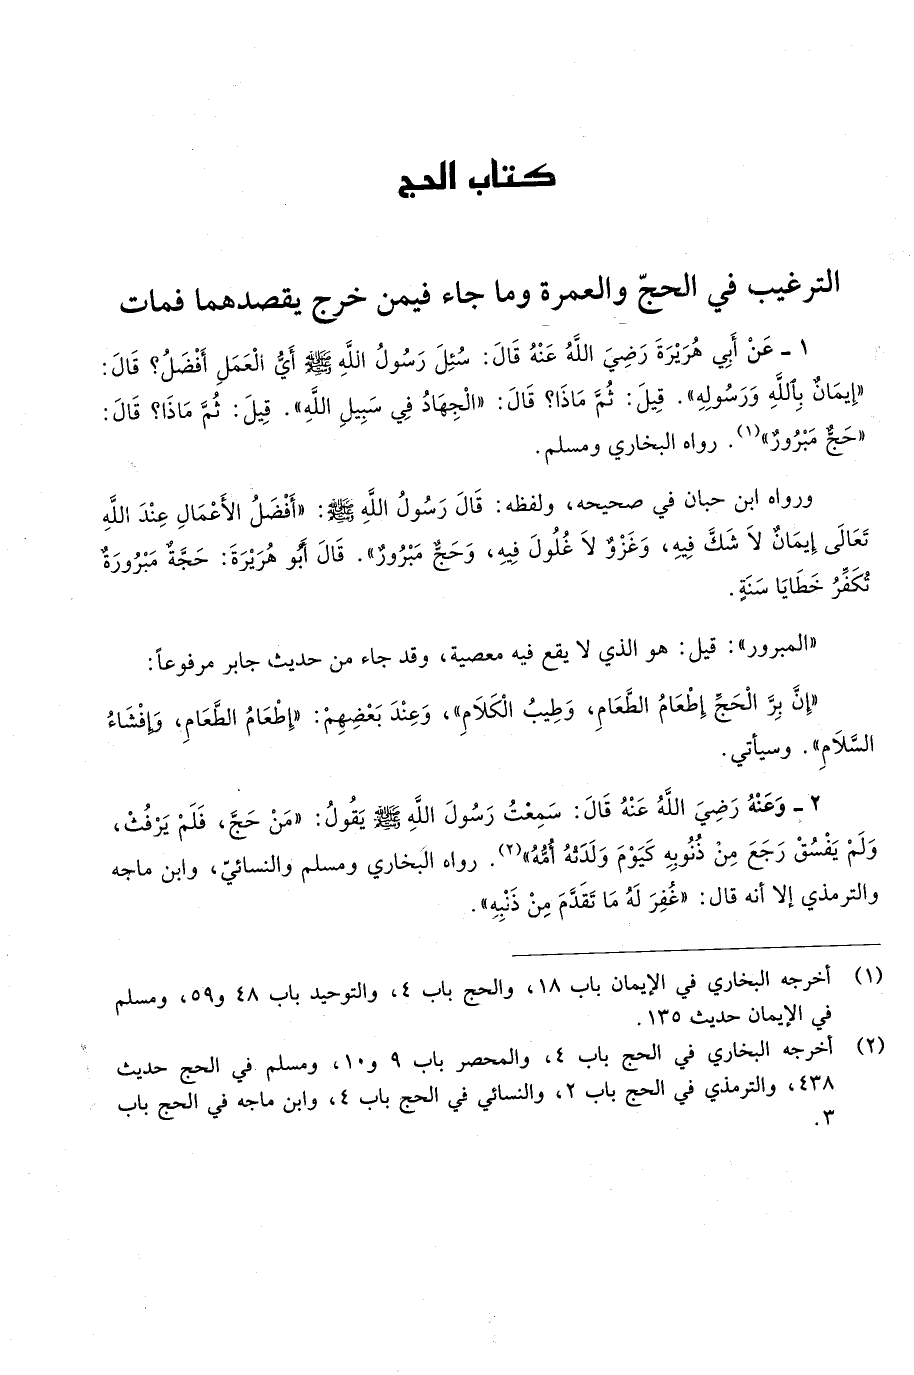 كتاب الحج
الترغيب في الحجّ والعمرة وما جاء فيمن خرج يقصدهما فمات
١ ـ عَنْ أَبِي هُرَيْرَةَ رَضِيَ اللَّهُ عَنْهُ قَالَ: سُئِلَ رَسُولُ اللَّهِ ﷺ أَيُّ الْعَمَلِ أَفْضَلُ؟ قَالَ:
«إِيمَانٌ بِاللَّهِ وَرَسُولِهِ». قِيلَ: ثُمَّ مَاذَا؟ قَالَ: «الْجِهَادُ فِي سَبِيلِ اللَّهِ». قِيلَ: ثُمَّ مَاذَا؟ قَالَ:
«حَجٌّ مَبْرُورٌ»(١). رواه البخاري ومسلم.
ورواه ابن حبان في صحيحه، ولفظه: قَالَ رَسُولُ اللَّهِ ﷺ: «أَفْضَلُ الأَعْمَالِ عِنْدَ اللَّهِ
تَعَالَى إِيمَانٌ لاَ شَكَّ فِيهِ، وَغَزْوٌ لاَ غُلُولَ فِيهِ، وَحَجٌّ مَبْرُورٌ». قَالَ أَبُو هُرَيْرَةَ: حَجَّةٌ مَبْرُورَةٌ
تُكَفِّرُ خَطَايَا سَنَةٍ.
«المبرور»: قيل: هو الذي لا يقع فيه معصية، وقد جاء من حديث جابر مرفوعاً:
«إِنَّ بِرَّ الْحَجِّ إِطْعَامُ الطَّعَامِ، وَطِيبُ الْكَلَامِ»، وَعِنْدَ بَعْضِهِمْ: «إِطْعَامُ الطَّعَامِ، وَإِفْشَاءُ
السَّلَامِ». وسيأتي.
٢ ـ وَعَنْهُ رَضِيَ اللَّهُ عَنْهُ قَالَ: سَمِعْتُ رَسُولَ اللَّهِ ﷺ يَقُولُ: «مَنْ حَجَّ، فَلَمْ يَرْفُثْ،
وَلَمْ يَفْسُقْ رَجَعَ مِنْ ذُنُوبِهِ كَيَوْمَ وَلَدَتْهُ أُمُّهُ»(٢). رواه البخاري ومسلم والنسائيّ، وابن ماجه
والترمذي إلا أنه قال: «غُفِرَ لَهُ مَا تَقَدَّمَ مِنْ ذَنْبِهِ».
(١) أخرجه البخاري في الإيمان باب ١٨، والحج باب ٤، والتوحيد باب ٤٨ و٥٩، ومسلم
في الإيمان حديث ١٣٥.
(٢) أخرجه البخاري في الحج باب ٤، والمحصر باب ٩ و١٠، ومسلم في الحج حديث
٤٣٨، والترمذي في الحج باب ٢، والنسائي في الحج باب ٤، وابن ماجه في الحج باب
٣.